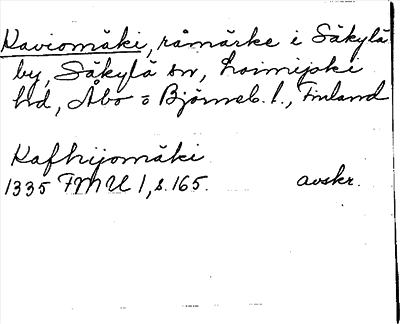 Kaviomäki, råmärke i Säkylä
by, Säkylä sn, Loimijoki
hd, Åbo o Björneb. l., Finland
Kafhijomäki
1335 FMU 1, s. 165. avskr.